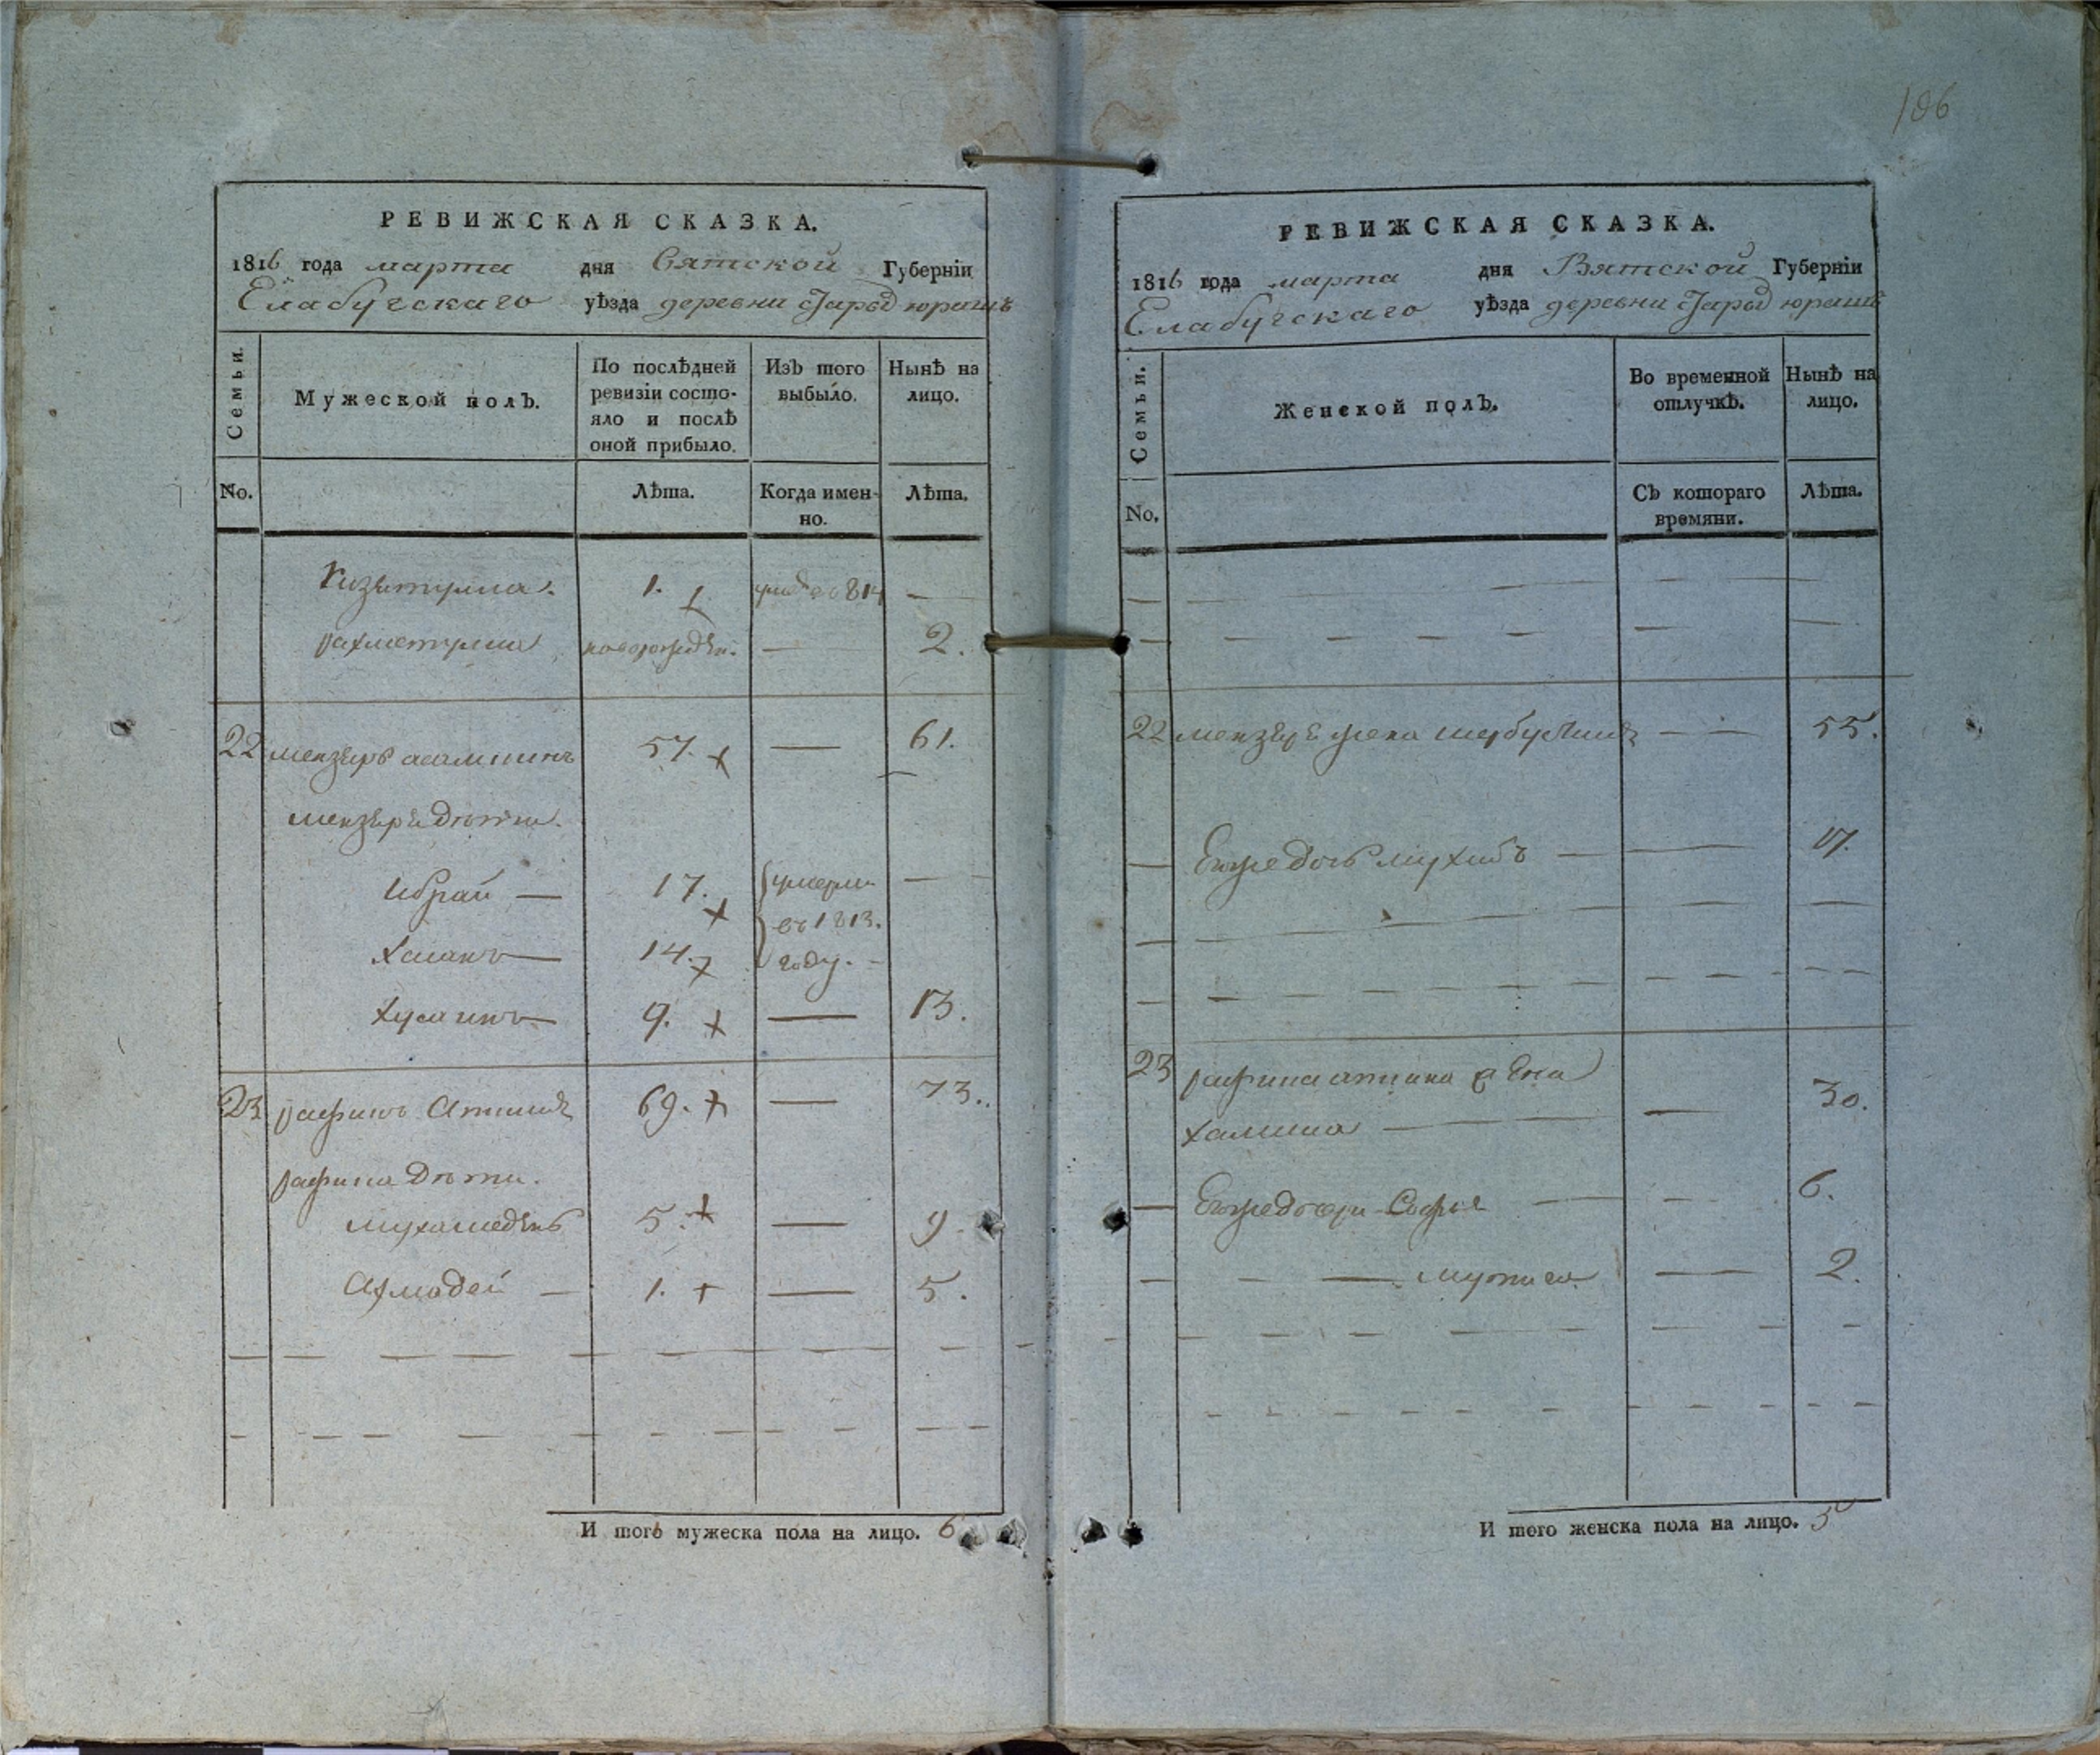 186
РЕВИЖСКАЯ СКАЗКА.
1816 года марта дня Вятской Губерніи
Елабугскаго уѣзда деревни Старой юрашъ
Семьи.
Мужеской полъ.
По послѣдней ревизіи состояло и послѣ оной прибыло.
Изъ того выбыло.
Нынѣ на лицо.
No.
Лѣта.
Когда именно.
Лѣта.
1. 814 —
новорожден. — 2.
22 мензеръ 57. + — 61.
мензеря дѣти.
Ибрай — 17. + умерли —
Хасанъ — 14. + въ 1813. году. —
Хусаинъ — 9. + — 13.
23 рафикъ 69. + — 73.
дѣти.
мухамедень 5. + — 9.
Ахмадей — 1. + — 5.
И того мужеска пола на лицо. 6
РЕВИЖСКАЯ СКАЗКА.
1816 года марта дня Вятской Губерніи
Елабугскаго уѣзда деревни Старой юрашъ
Семьи.
Женской полъ.
Во временной отлучкѣ.
Нынѣ на лицо.
No.
Съ котораго времяни.
Лѣта.
22 мензеря жена — — 55.
— Егоже дочь — — 17.
23
халима — — 30.
— Егоже дочери Софья — — 6.
— — — — 2.
И того женска пола на лицо. 5